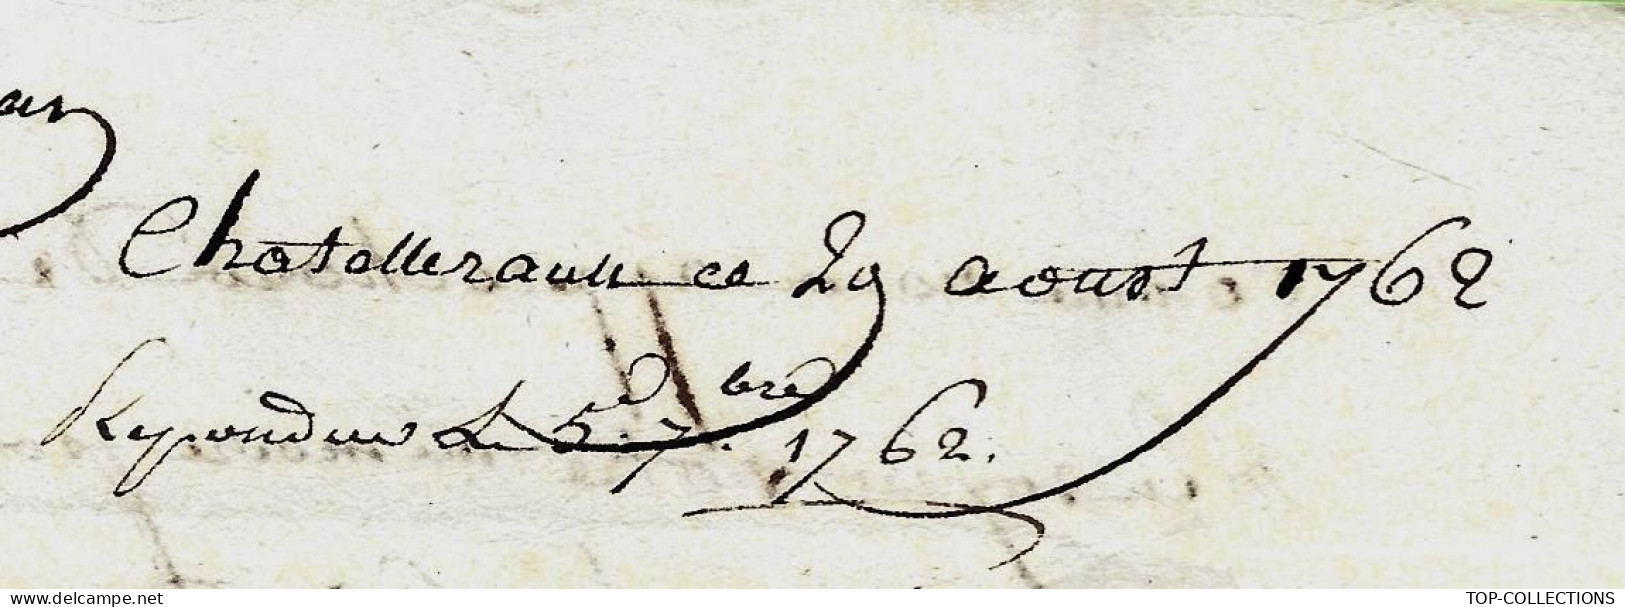 Chatelleraull ce 29 aoust 1762
Repondue Le 5.e 7.bre 1762.
delcampe.net
TOP-COLLECTIONS